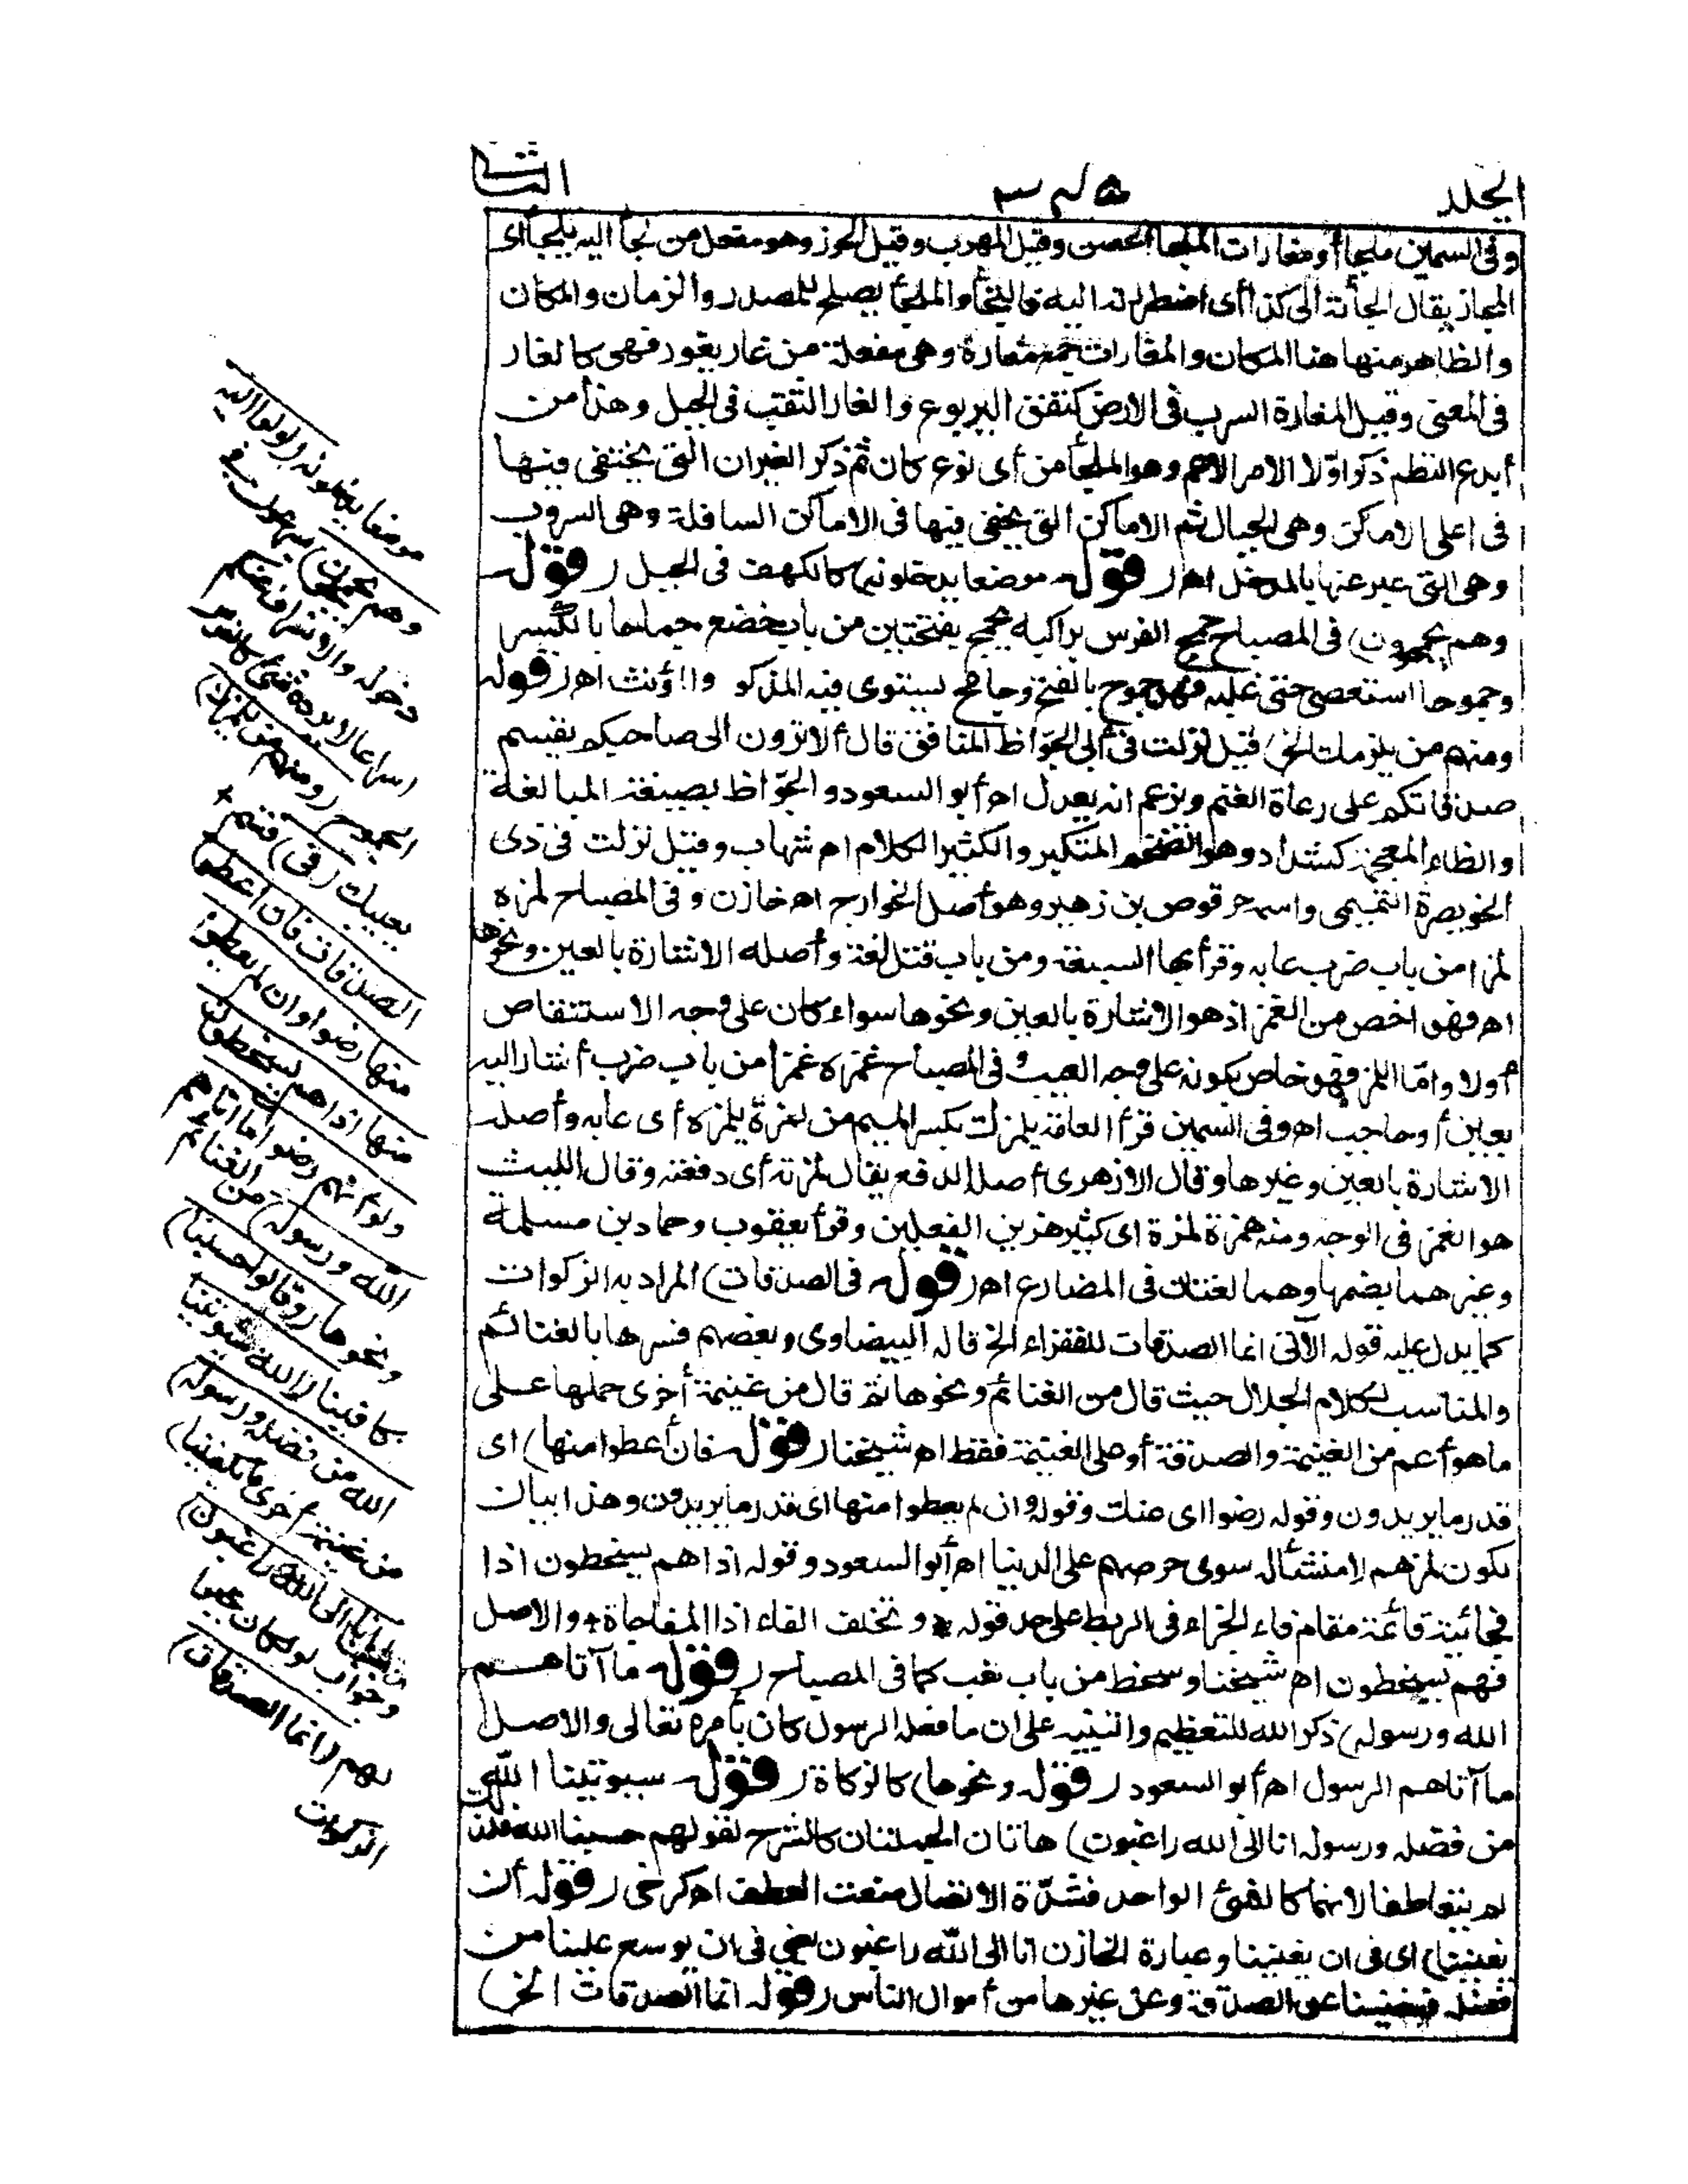 الجلد
٣٤٥
الثانى
وفى السمين ملجأ أو مغارات الملجأ الحصن وقيل المهرب وقيل الحرز وهو مفعل من لجأ اليه يلجأ أى
انحاز يقال ألجأته الى كذا أى اضطررته اليه فالتجأ والملجأ يصلح للمصدر والزمان والمكان
والظاهر منها هنا المكان والمغارات جمع مغارة وهى مفعلة من غار يغور فهى كالغار
فى المعنى وقيل المغارة السرب فى الارض كنفق اليربوع والغار الثقب فى الجبل وهذا من
أبدع النظم ذكر اوّلا الامر الاعم وهو الملجأ من أى نوع كان ثم ذكر الغيران التى يختفى فيها
فى اعلى الاماكن وهى الجبال ثم الاماكن التى يختفى فيها فى الاماكن السافلة وهى السروب
وهى التى عبر عنها بالمدخل اه (قوله موضعا يدخلونه) كالكهف فى الجبل (قوله
وهم يجمحون) فى المصباح جمح الفرس براكبه يجمح بفتحتين من باب خضع جماحا بالكسر
وجموحا استعصى حتى غلبه فهو جموح بالفتح وجامح يستوى فيه المذكر والمؤنث اه (قوله
ومنهم من يلمزك الخ) قيل نزلت فى أبى الجوّاظ المنافق قال ألا ترون الى صاحبكم يقسم
صدقاتكم على رعاة الغنم ويزعم انه يعدل اه أبو السعود والجوّاظ بصيغة المبالغة
والظاء المعجمة كشداد وهو الضخم المتكبر والكثير الكلام اه شهاب وقيل نزلت فى ذى
الخويصرة التميمى واسمه حرقوص بن زهير وهو أصل الخوارج اه خازن وفى المصباح لمزه
لمزا من باب ضرب عابه وقرأ بها السبعة ومن باب قتل لغة وأصله الاشارة بالعين ونحوها
اه فهو اخص من الغمز اذ هو الاشارة بالعين ونحوها سواء كان على وجه الاستنقاص
أولا واما اللمز فهو خاص بكونه على وجه العيب وفى المصباح غمزه غمزا من باب ضرب أشار اليه
بعين أو حاجب اه وفى السمين قرأ العامة يلمزك بكسر الميم من لمزه يلمزه أى عابه وأصله
الاشارة بالعين وغيرها وقال الازهرى أصله الدفع يقال لمزته أى دفعته وقال الليث
هو الغمز فى الوجه ومنه همزة لمزة اى كثير هذين الفعلين وقرأ يعقوب وحماد بن مسلمة
وغيرهما بضمها وهما لغتان فى المضارع اه (قوله فى الصدقات) المراد به الزكوات
كما يدل عليه قوله الآتى انما الصدقات للفقراء الخ قاله البيضاوى وبعضهم فسرها بالغنائم
والمناسب لكلام الجلال حيث قال من الغنائم ونحوها ثم قال من غنيمة أخرى حملها على
ما هو أعم من الغنيمة والصدقة أو على الغنيمة فقط اه شيخنا (قوله فان أعطوا منها) اى
قدر ما يريدون وقوله رضوا اى عنك وقوله وان لم يعطوا منها اى قدر ما يريدون وهذا بيان
لكون لمزهم لا منشأ له سوى حرصهم على الدنيا اه أبو السعود وقوله اذا هم يسخطون اذا
فجائية قائمة مقام فاء الجزاء فى الربط على حد قوله * وتخلف الفاء اذا المفاجاة * والاصل
فهم يسخطون اه شيخنا وسخط من باب تعب كما فى المصباح (قوله ما آتاهم
الله ورسوله) ذكر الله للتعظيم والتنبيه على ان ما فعله الرسول كان بأمره تعالى والاصل
ما آتاهم الرسول اه أبو السعود (قوله ونحوها) كالزكاة (قوله سيوتينا الله
من فضله ورسوله انا الى الله راغبون) هاتان الجملتان كالشرح لقولهم حسبنا الله فلذلك
لم يتعاطفا لانهما كالشئ الواحد فشدّة الاتصال منعت العطف اه كرخى (قوله أن
يغنينا) اى فى ان يغنينا وعبارة الخازن انا الى الله راغبون يعنى فى ان يوسع علينا من
فضله فيغنينا عن الصدقة وعن غيرها من أموال الناس (قوله انما الصدقات الخ)
موضعا يدخلونه (لولوا اليه
وهم يجمحون) يسرعون فى
دخوله والانصراف عنكم
اسراعا لا يرده شئ كالفرس
الجموح (ومنهم من يلمزك)
يعيبك (فى) قسم
الصدقات فان أعطوا
منها رضوا وان لم يعطوا
منها اذا هم يسخطون
ولو أنهم رضوا ما آتاهم
الله ورسوله) من الغنائم
ونحوها (وقالوا حسبنا)
كافينا (الله سيوتينا
الله من فضله ورسوله)
من غنيمة أخرى ما يكفينا)
انا الى الله راغبون)
وجواب لو لكان خيرا
لهم (انما الصدقات)
الزكوات